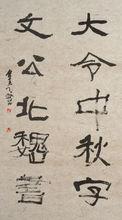 大令中秋字
文公北魏書